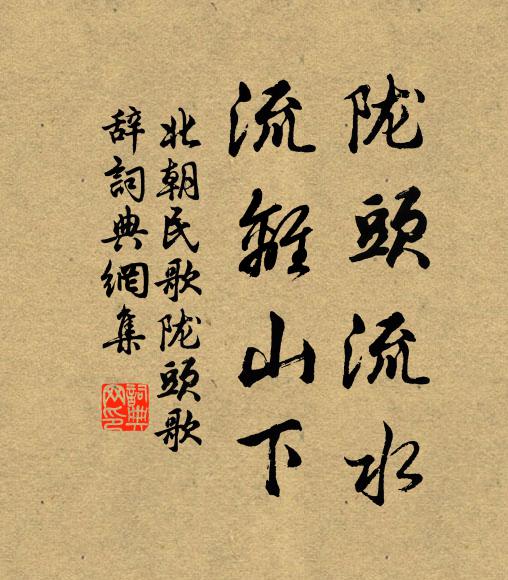 陇頭流水
流離山下
北朝民歌陇頭歌
辞詞典網集
詞典
网印